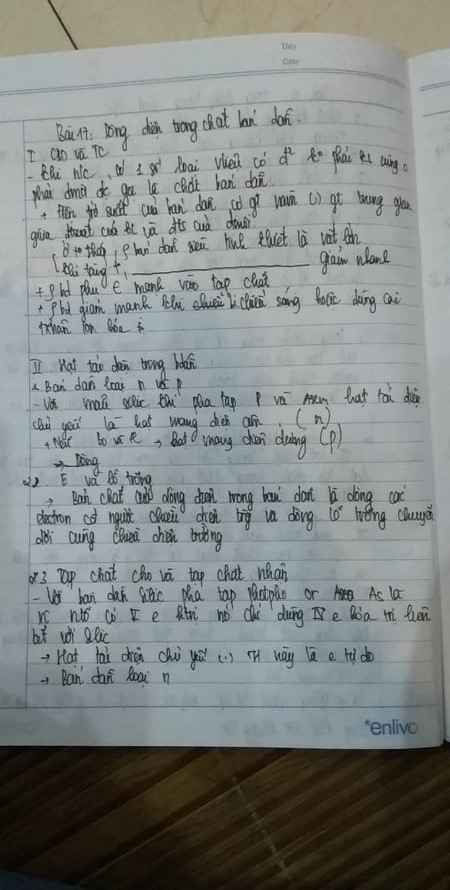 Thứ
Date
Bài 17: Dòng điện trong chất bán dẫn.
I CBD và TC
- Khi n/c, có 1 số loại phải KL cũng o
phải đmôi đc gọi là chất bán dẫn.
+ Điện trở suất của bán dẫn có gt nằm (.) gt trung gian
giữa thuất của KL và đts của đmôi.
Ở to thấp, ρ bán dẫn siêu tinh khiết là vất lớn
Khi tăng to, ____________ giảm nhanh
+ ρ bd phụ ∈ mạnh vào tạp chất
+ ρ bd giảm mạnh khi chiếu sáng hoặc dùng các
nhân ion hóa
II Hạt tải điện trong bdẫn
1. Bán dẫn loại n và p
- Với mẫu silic pha tạp P và Asen, hạt tải điện
chủ yếu là hạt mang điện âm (n)
+ Nếu → hạt mang điện dương (p)
→ Dòng
2, E và lỗ trống
→ Bản chất của dòng điện trong bán dẫn là dòng các
electron cđ ngược chiều điện trg và dòng lỗ trống chuyển
dời cùng chiều điện trường
3 Tạp chất cho và tạp chất nhận
- Với bán dẫn silic pha tạp photpho or As là
ntố có V e htrị nó chỉ dùng IV e hóa trị liên
kết với silic
→ Hạt tải điện chủ yếu (.) TH này là e tự do
→ Bán dẫn loại n
enlivo